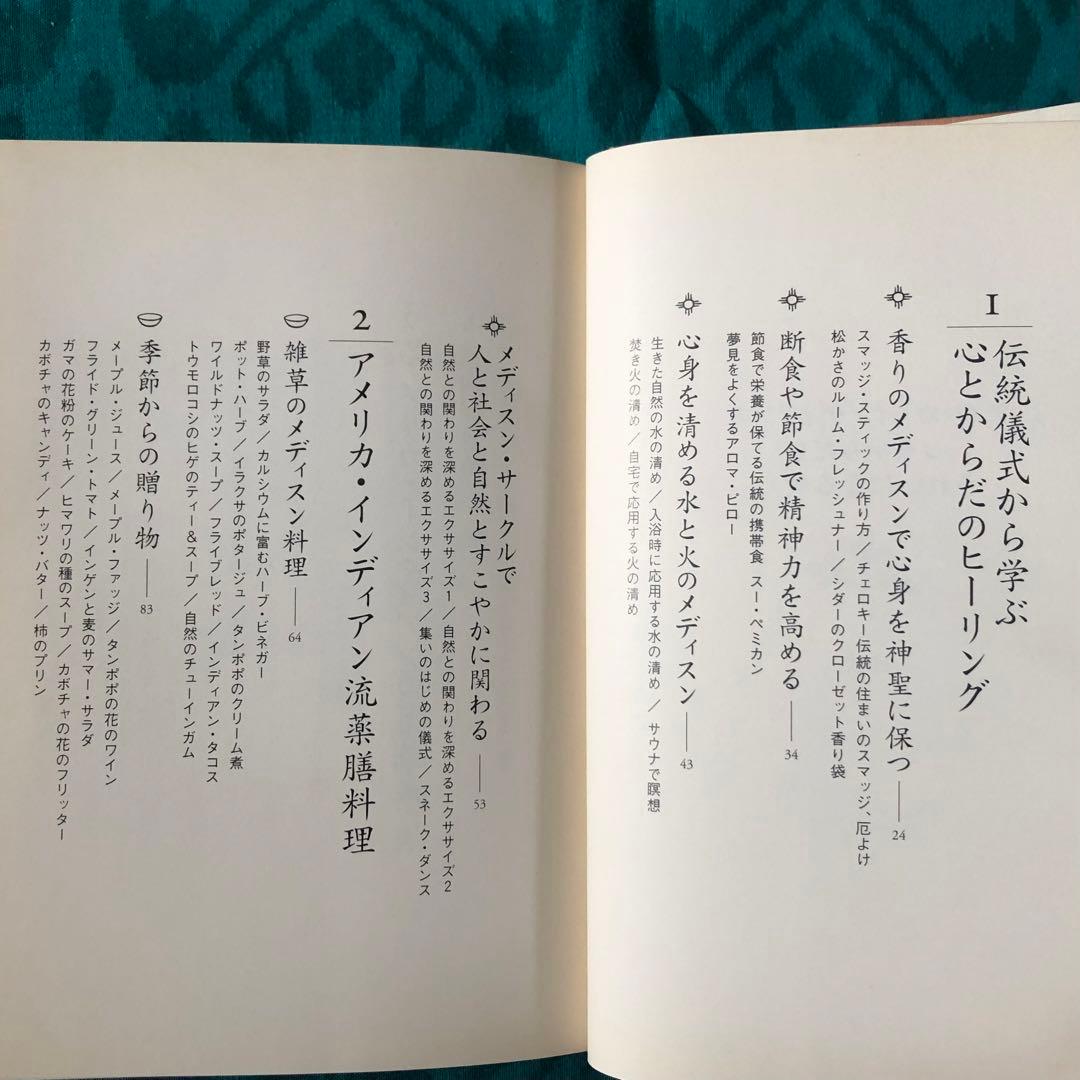 1
伝統儀式から学ぶ
心とからだのヒーリング
香りのメディスンで心身を神聖に保つ——24
スマッジ・スティックの作り方／チェロキー伝統の住まいのスマッジ、厄よけ
松かさのルーム・フレッシュナー／シダーのクローゼット香り袋
断食や節食で精神力を高める——34
節食で栄養が保てる伝統の携帯食 スー・ペミカン
夢見をよくするアロマ・ピロー
心身を清める水と火のメディスン——43
生きた自然の水の清め／入浴時に応用する水の清め／サウナで瞑想
焚き火の清め／自宅で応用する火の清め
メディスン・サークルで
人と社会と自然とすこやかに関わる——53
自然との関わりを深めるエクササイズ1／自然との関わりを深めるエクササイズ2
自然との関わりを深めるエクササイズ3／集いのはじめの儀式／スネーク・ダンス
2
アメリカ・インディアン流薬膳料理
雑草のメディスン料理——64
野草のサラダ／カルシウムに富むハーブ・ビネガー
ポット・ハーブ／イラクサのポタージュ／タンポポのクリーム煮
ワイルドナッツ・スープ／フライブレッド／インディアン・タコス
トウモロコシのヒゲのティー＆スープ／自然のチューインガム
季節からの贈り物——83
メープル・ジュース／メープル・ファッジ／タンポポの花のワイン
フライド・グリーン・トマト／インゲンと麦のサマー・サラダ
ガマの花粉のケーキ／ヒマワリの種のスープ／カボチャの花のフリッター
カボチャのキャンディ／ナッツ・バター／柿のプリン